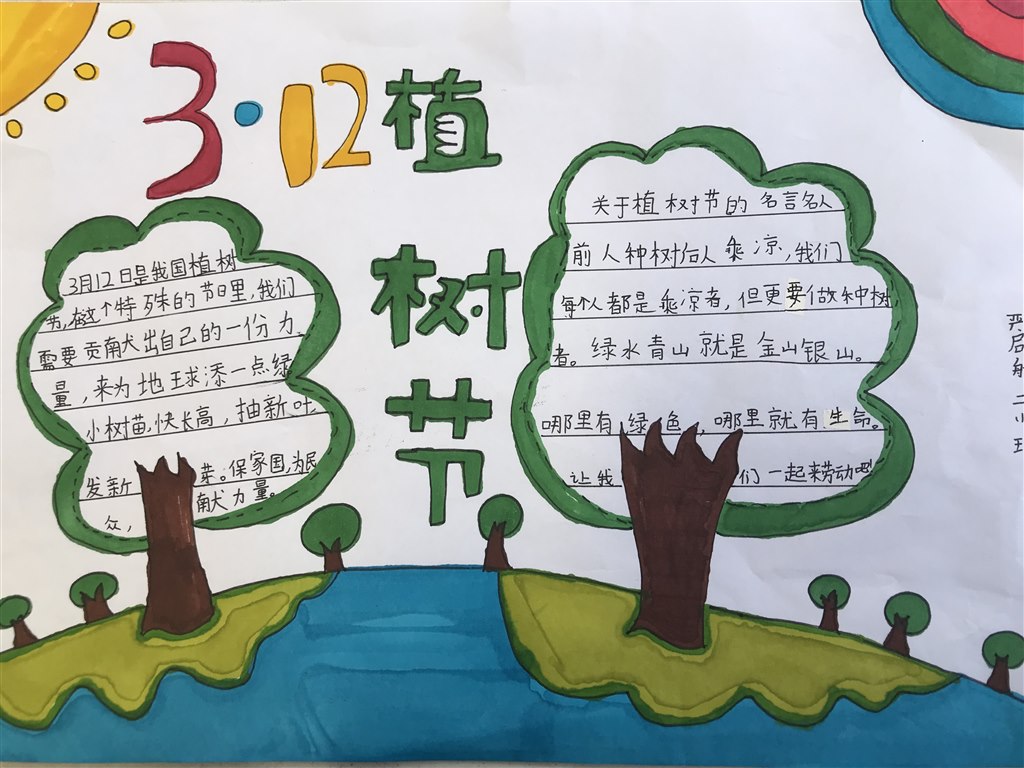 3·12植
树
节
3月12日是我国植树
节,在这个特殊的节日里,我们
需要贡献出自己的一份力
量,来为地球添一点绿
小树苗,快长高,抽新叶,
发新芽。保家国,为民
众,献力量。
关于植树节的名言名人
前人种树后人乘凉,我们
每个人都是乘凉者,但更要做种树
者。绿水青山就是金山银山。
哪里有绿色,哪里就有生命。
让我们一起来劳动吧